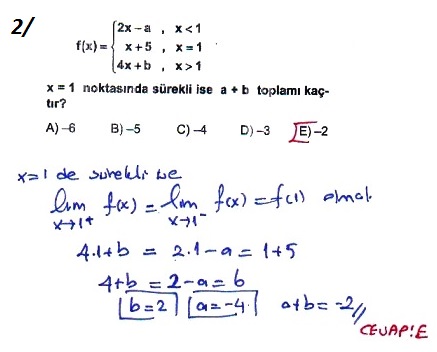 2/
f(x) = { 2x − a , x < 1
x + 5 , x = 1
4x + b , x > 1
x = 1 noktasında sürekli ise a + b toplamı kaç-
tır?
A) −6 B) −5 C) −4 D) −3 E) −2
x=1 de sürekli ise
lim x→1+ f(x) = lim x→1- f(x) = f(1) olmalı
4.1+b = 2.1−a = 1+5
4+b = 2−a = 6
b=2 a=−4 a+b=−2//
CEVAP:E